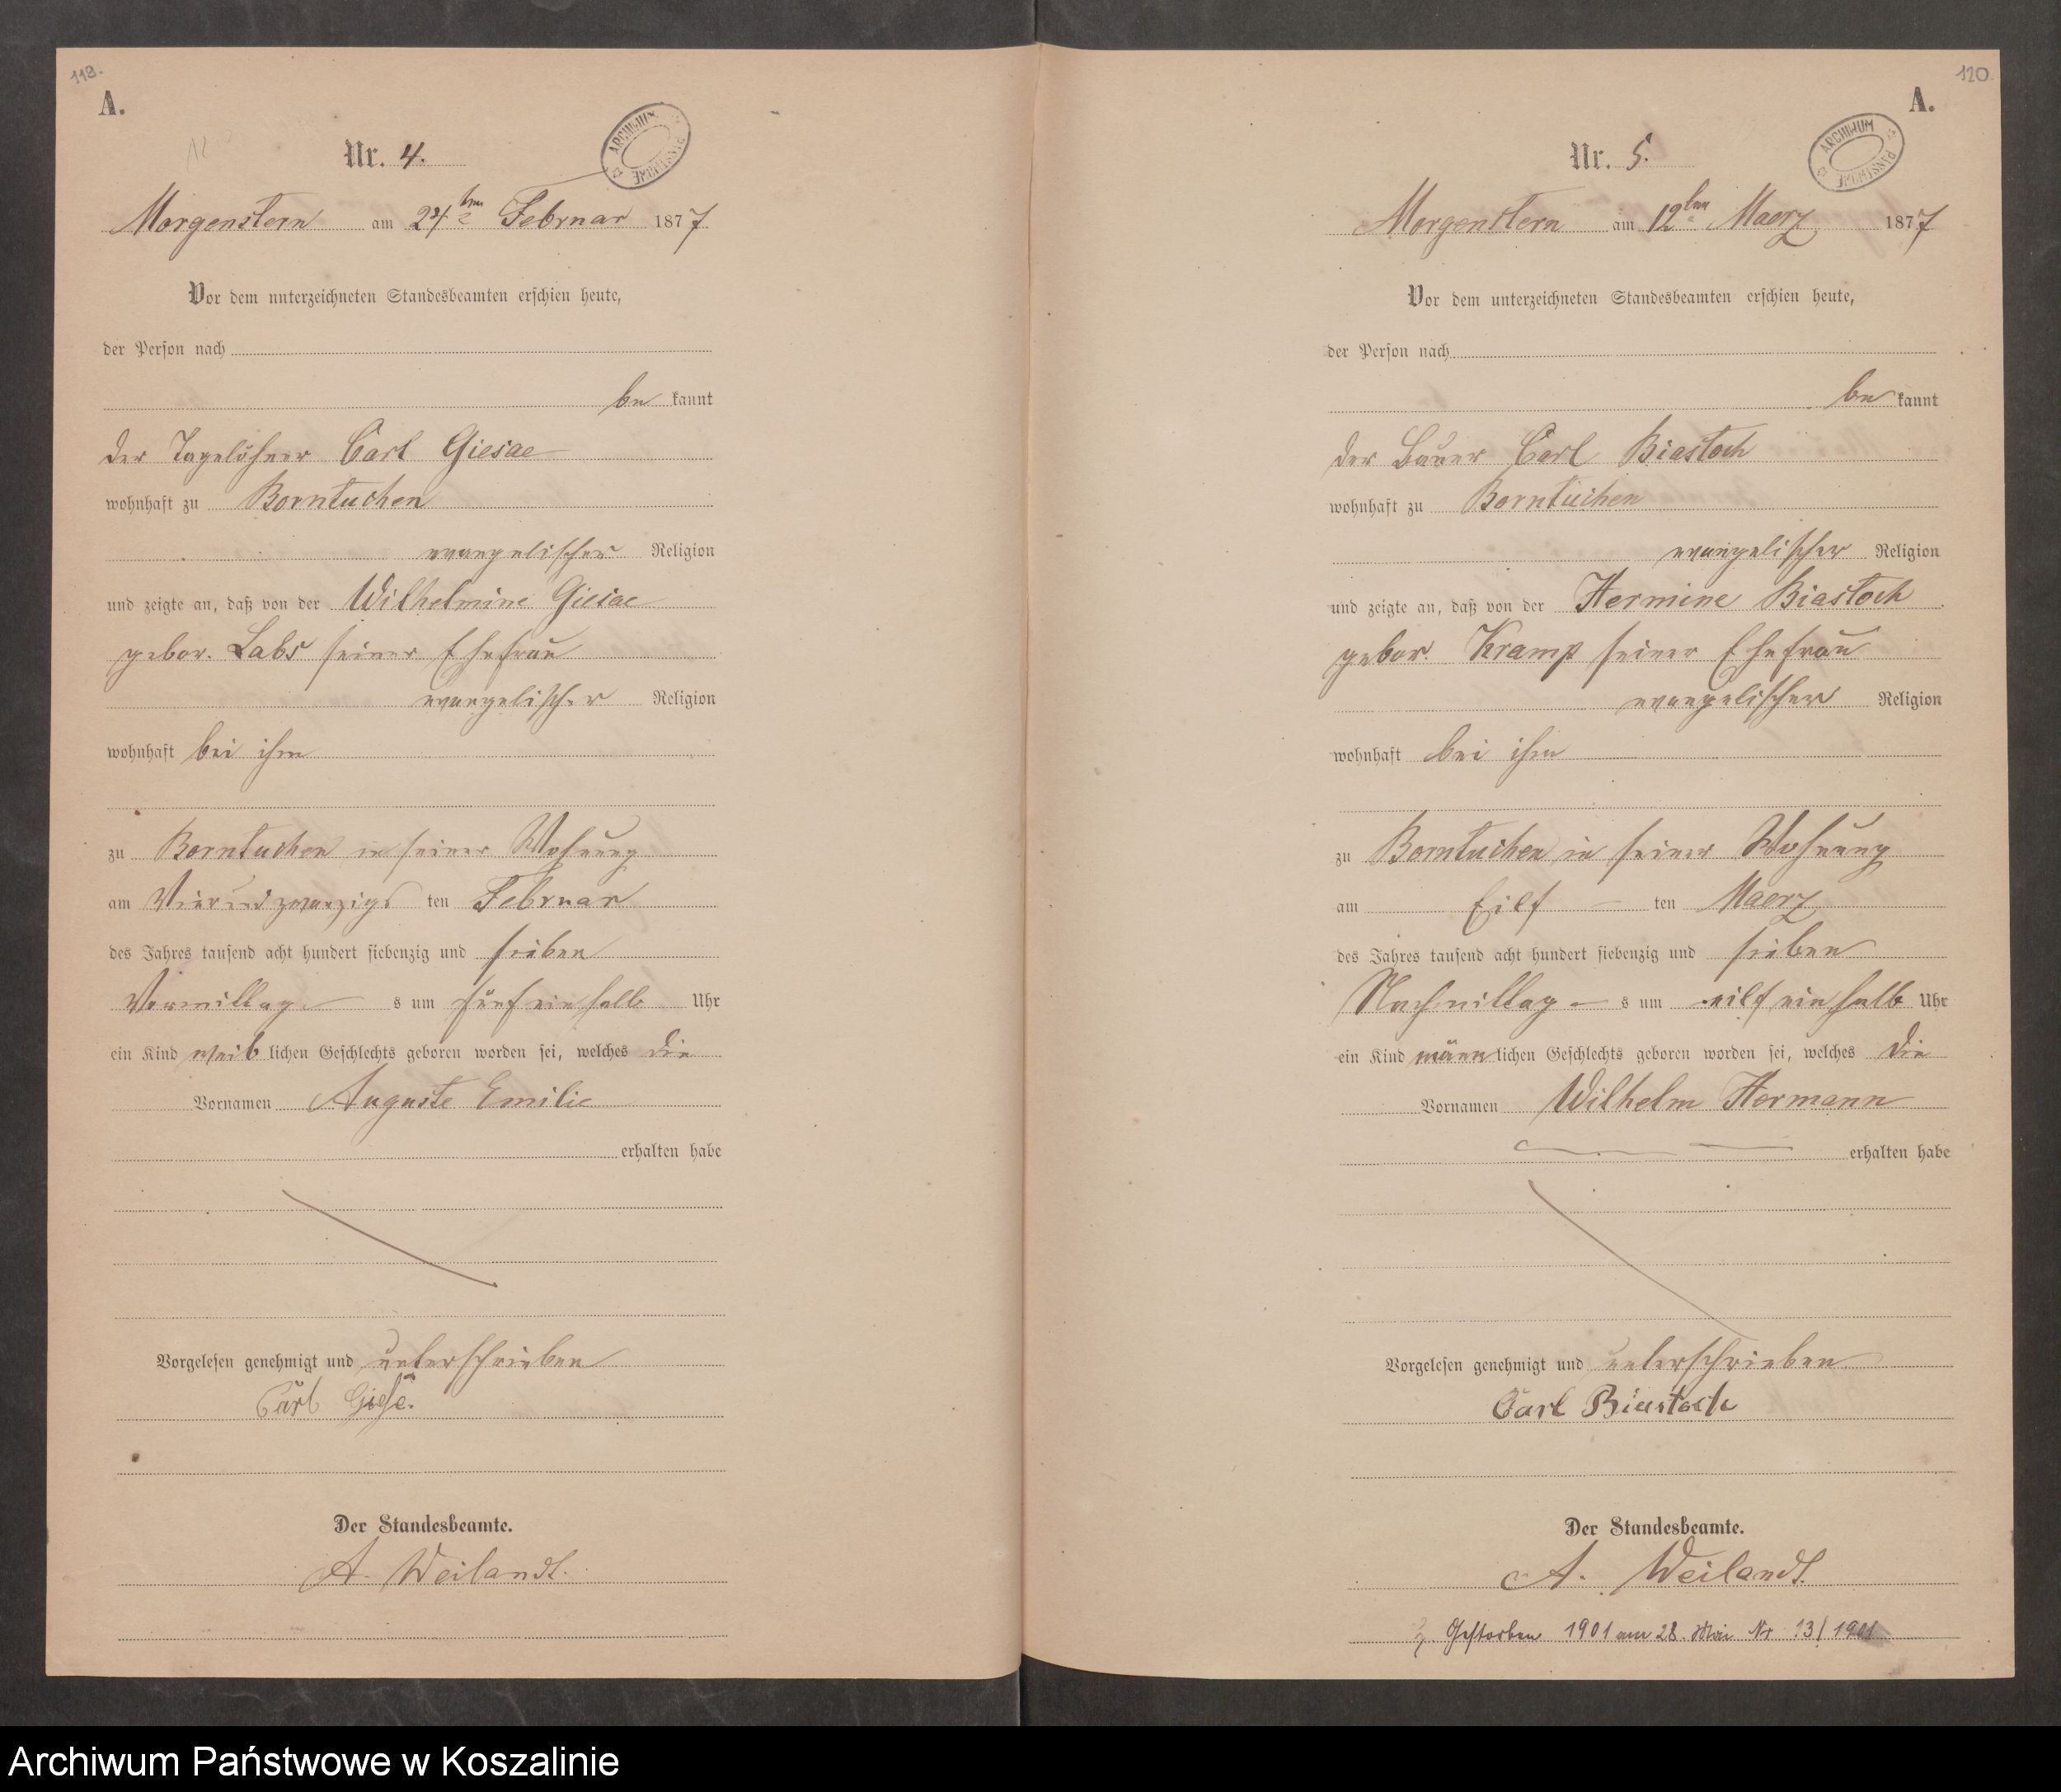 119.
A.
ARCHIWUM PAŃSTWOWE
Nr. 4.
Morgenstern am 24ten Februar 1877
Vor dem unterzeichneten Standesbeamten erschien heute,
der Person nach
be kannt
der Tagelöhner Carl Giesae
wohnhaft zu Borntuchen
evangelischer Religion
und zeigte an, daß von der Wilhelmine Giesae
gebor. Labs seiner Ehefrau
evangelischer Religion
wohnhaft bei ihm
zu Borntuchen in seiner Wohnung
am Vierundzwanzigs ten Februar
des Jahres tausend acht hundert siebenzig und sieben
Vormittag s um fünf ein halb Uhr
ein Kind weib lichen Geschlechts geboren worden sei, welches die
Vornamen Auguste Emilie
erhalten habe
Vorgelesen genehmigt und unterschrieben
Carl Giese.
Der Standesbeamte.
A. Weilandt.
120
A.
ARCHIWUM PAŃSTWOWE
Nr. 5.
Morgenstern am 12ten Maerz 1877
Vor dem unterzeichneten Standesbeamten erschien heute,
der Person nach
be kannt
der Bauer Carl Biastoch
wohnhaft zu Borntuchen
evangelischer Religion
und zeigte an, daß von der Hermine Biastoch
gebor. Kramp seiner Ehefrau
evangelischer Religion
wohnhaft bei ihm
zu Borntuchen in seiner Wohnung
am Eilf ten Maerz
des Jahres tausend acht hundert siebenzig und sieben
Nachmittag s um eilf ein halb Uhr
ein Kind männ lichen Geschlechts geboren worden sei, welches die
Vornamen Wilhelm Hermann
erhalten habe
Vorgelesen genehmigt und unterschrieben
Carl Biastock
Der Standesbeamte.
A. Weilandt.
Gestorben 1901 am 28. Mai Nr 13/1901
Archiwum Państwowe w Koszalinie